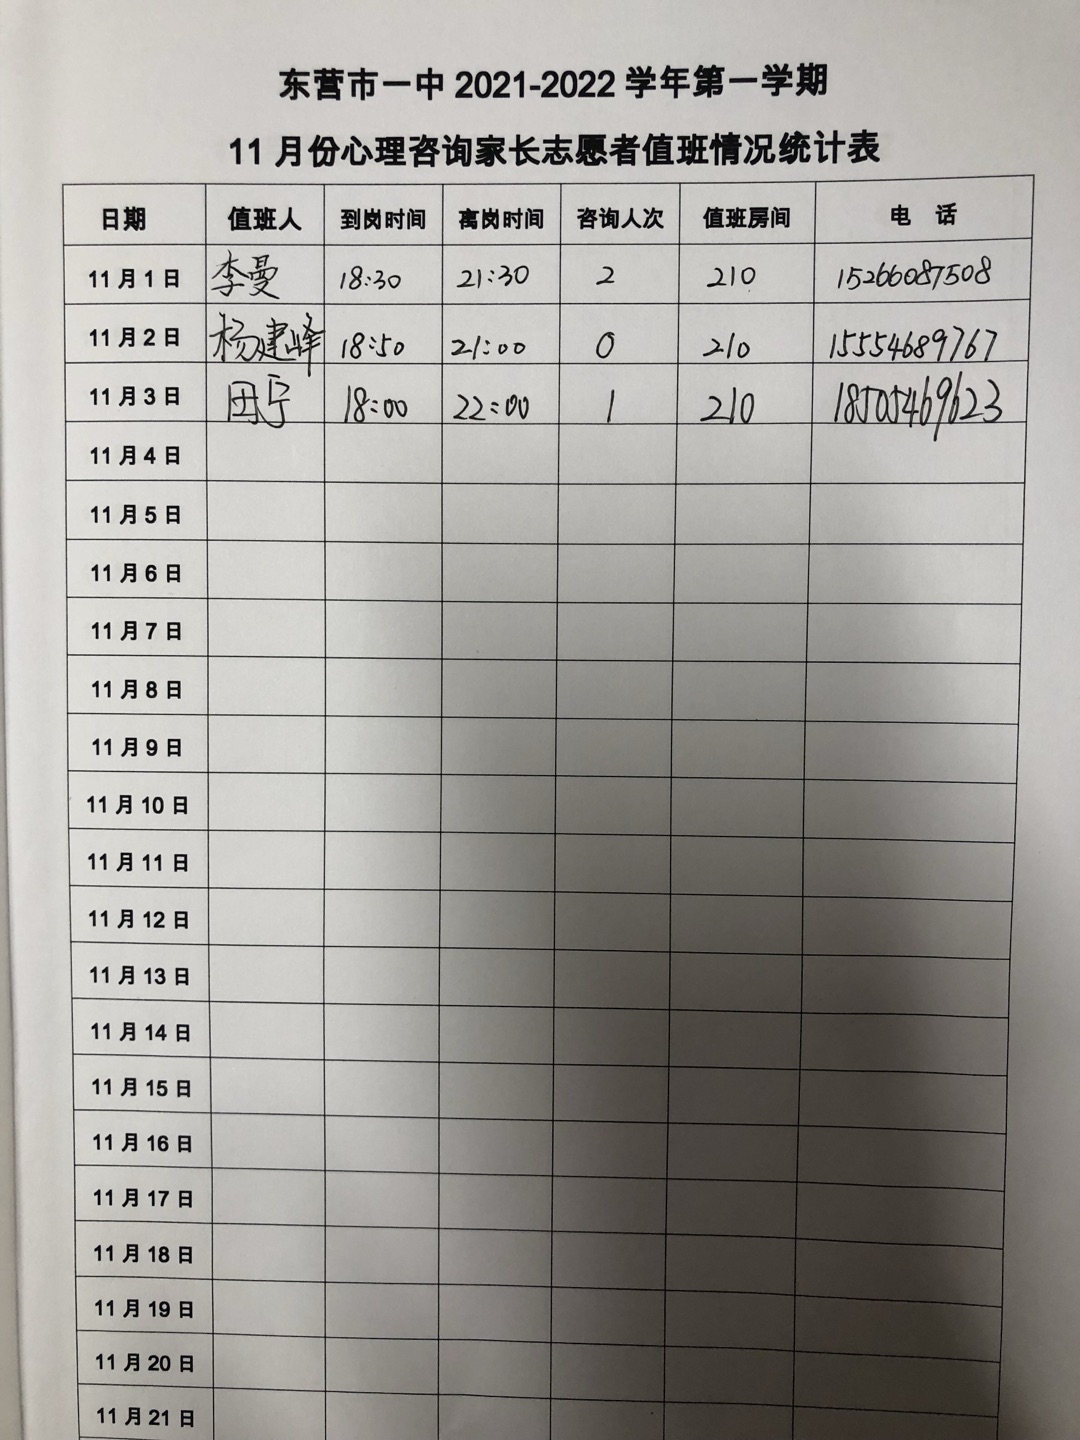 东营市一中 2021-2022 学年第一学期
11 月份心理咨询家长志愿者值班情况统计表
日期 值班人 到岗时间 离岗时间 咨询人次 值班房间 电 话
11 月 1 日 李曼 18:30 21:30 2 210 15266087508
11 月 2 日 杨建峰 18:50 21:00 0 210 15554689767
11 月 3 日 田宁 18:00 22:00 1 210 18505469623
11 月 4 日
11 月 5 日
11 月 6 日
11 月 7 日
11 月 8 日
11 月 9 日
11 月 10 日
11 月 11 日
11 月 12 日
11 月 13 日
11 月 14 日
11 月 15 日
11 月 16 日
11 月 17 日
11 月 18 日
11 月 19 日
11 月 20 日
11 月 21 日